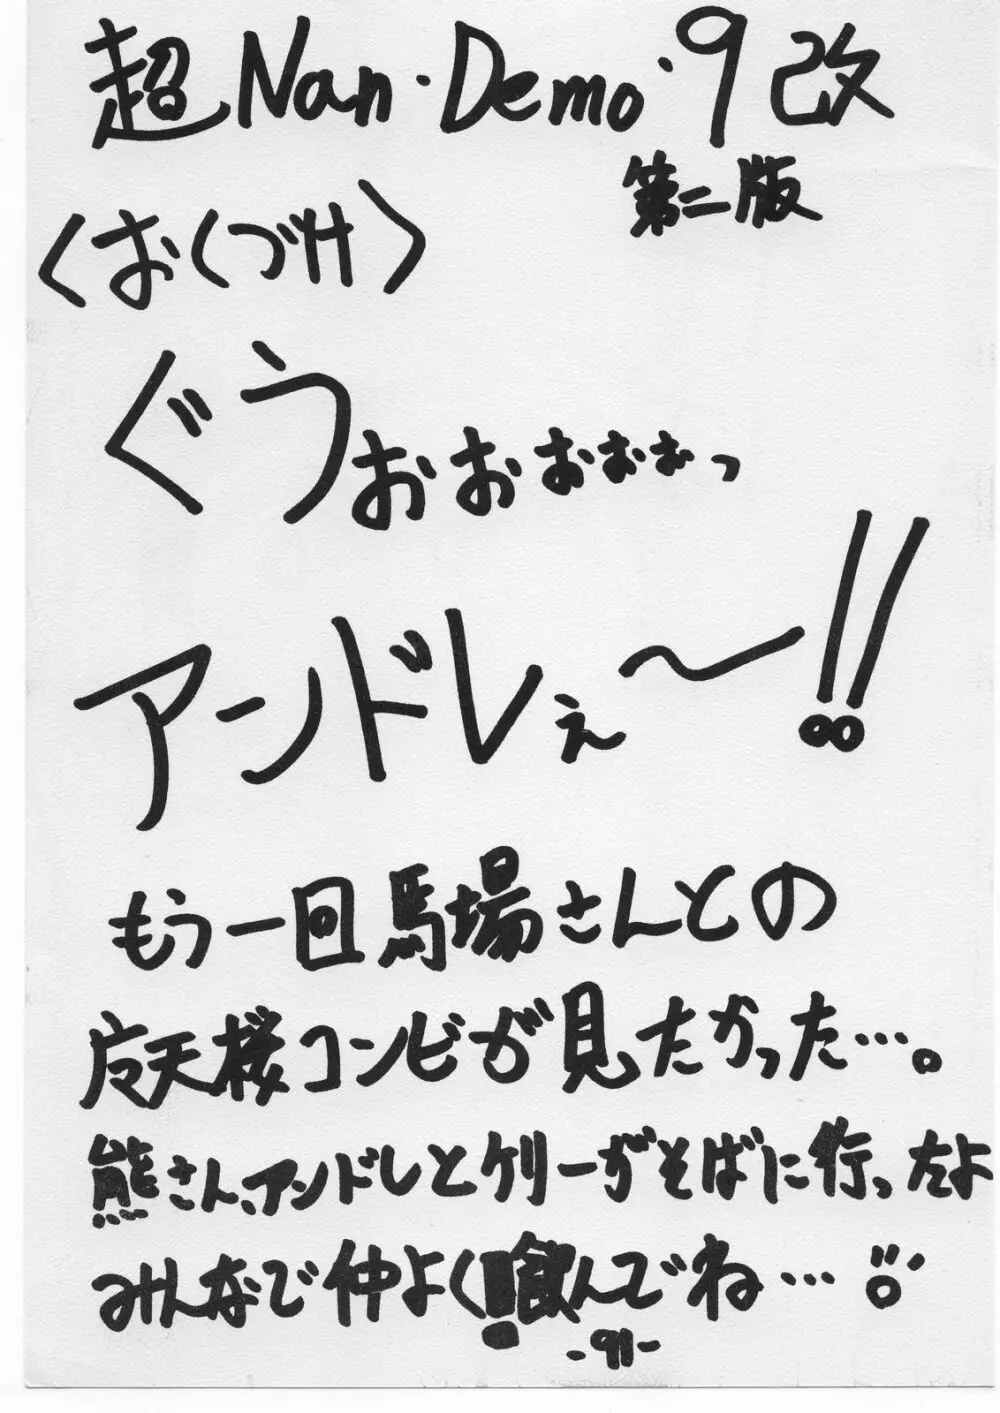 超Nan・Demo・9改
第二版
〈おくづけ〉
ぐうぉぉぉぉぉっ
アンドレぇ〜!!
もう一回馬場さんとの
摩天楼コンビが見たかった…。
熊さん、アンドレとケリーがそばに行ったよ
みんなで仲よく飲んでね…
-91-